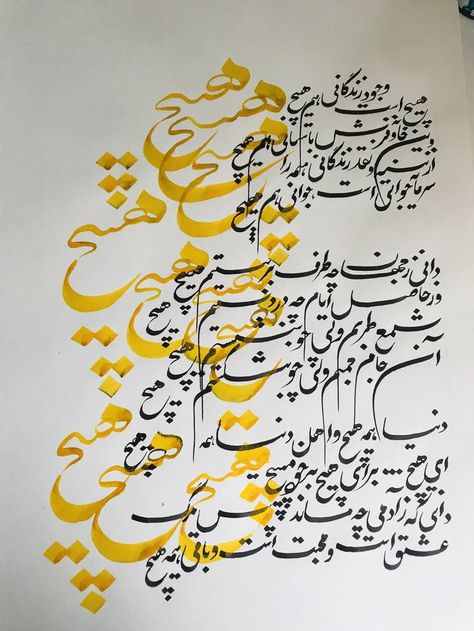 هیچ است وجود زندگانی هم هیچ
وین خانه و فرش باستانی هم هیچ
از نسیه و نقد زندگانی همه را
سرمایه جوانی است جوانی هم هیچ
دانی ز جهان چه طرف بربستم هیچ
وز حاصل ایام چه در دستم هیچ
شمع طربم ولی چو بنشستم هیچ
آن جام جمم ولی چو بشکستم هیچ
دنیا همه هیچ و اهل دنیا همه هیچ
ای هیچ ... برای هیچ بر هیچ مپیچ
دانی که ز آدمی چه ماند پس مرگ
عشق است و محبت است و باقی همه هیچ
هیچ
هیچ
هیچ
هیچ
هیچ
هیچ
هیچ
هیچ
هیچ